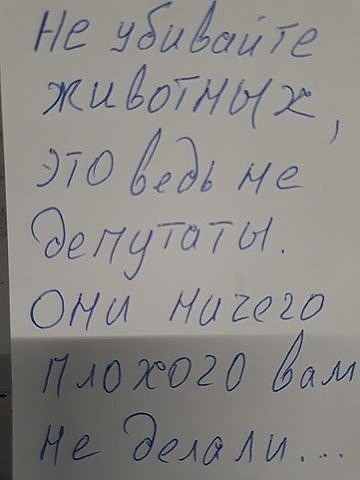 Не убивайте
животных,
это ведь не
депутаты.
Они ничего
плохого вам
не делали...